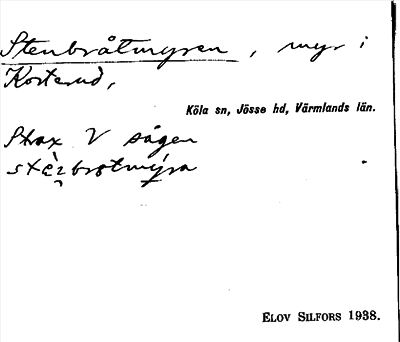 Stenbråtmyren, myr i
Kosterud,
Köla sn, Jösse hd, Värmlands län.
Strax V sågen
ELOV SILFORS 1938.